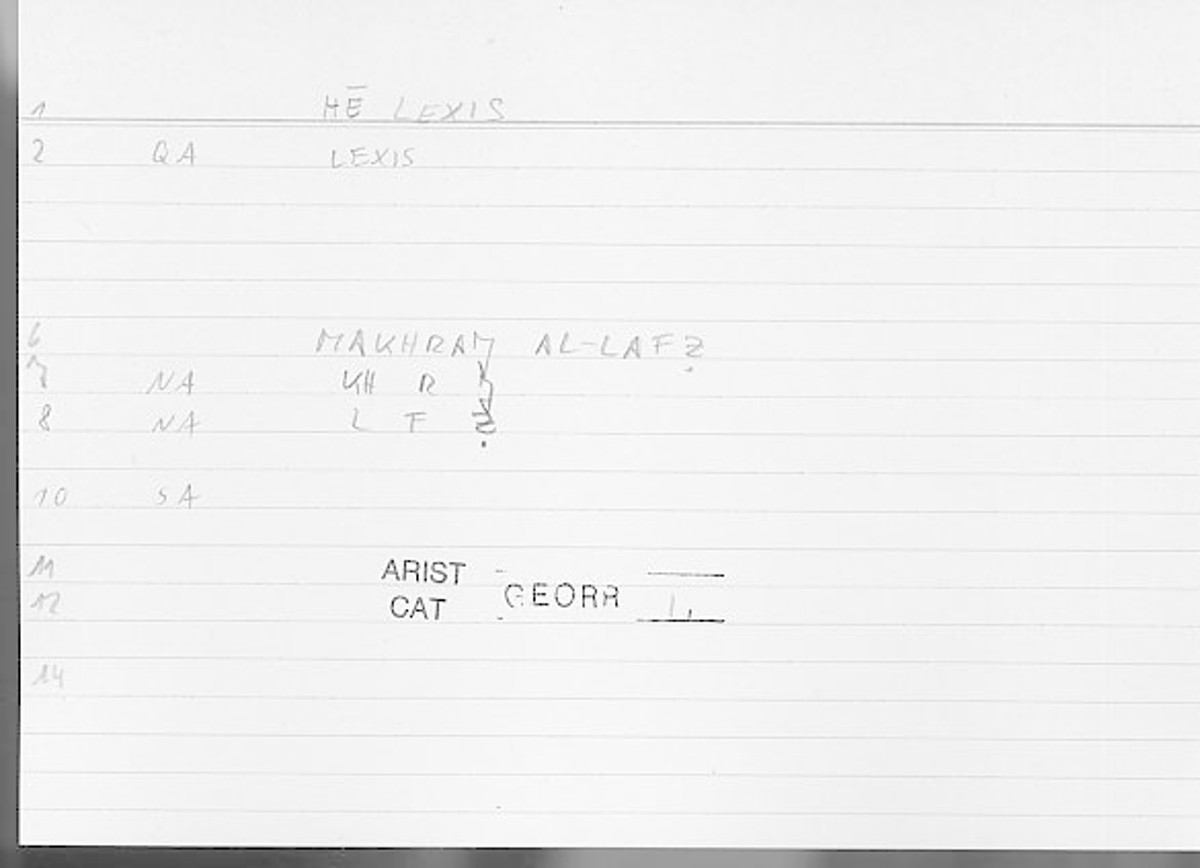 1 HĒ LEXIS
2 QA LEXIS
6 MAKHRAJ AL-LAFẒ
7 NA KH R J
8 NA L F Ẓ
10 SA
11 ARIST
GEORR
12 CAT
14